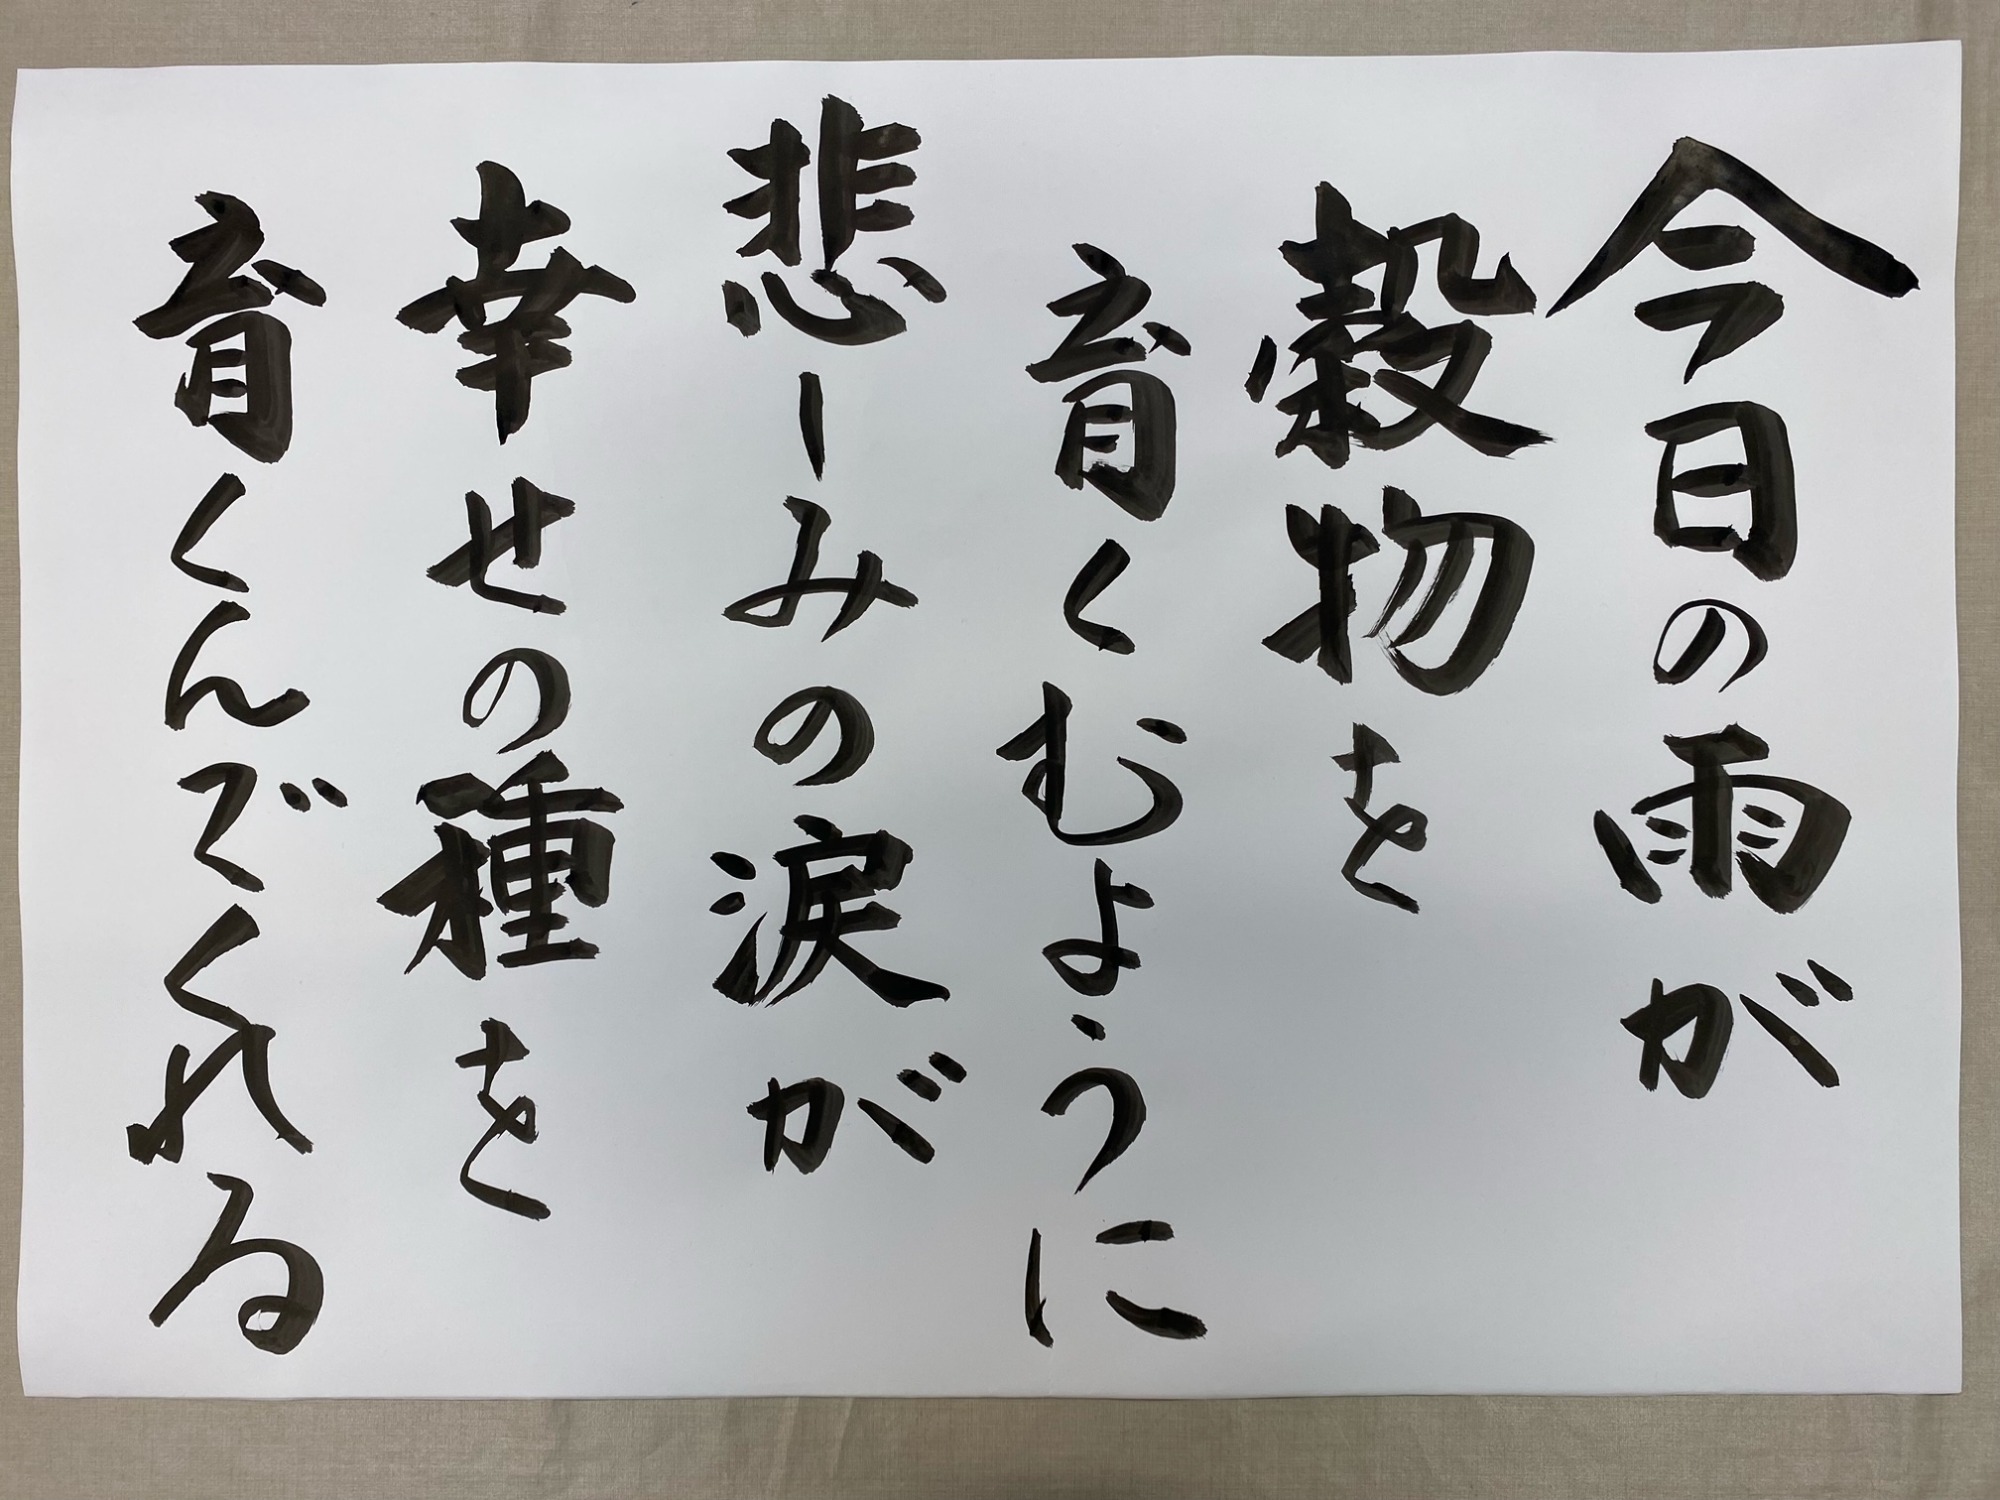 今日の雨が
穀物を
育くむように
悲しみの涙が
幸せの種を
育くんでくれる